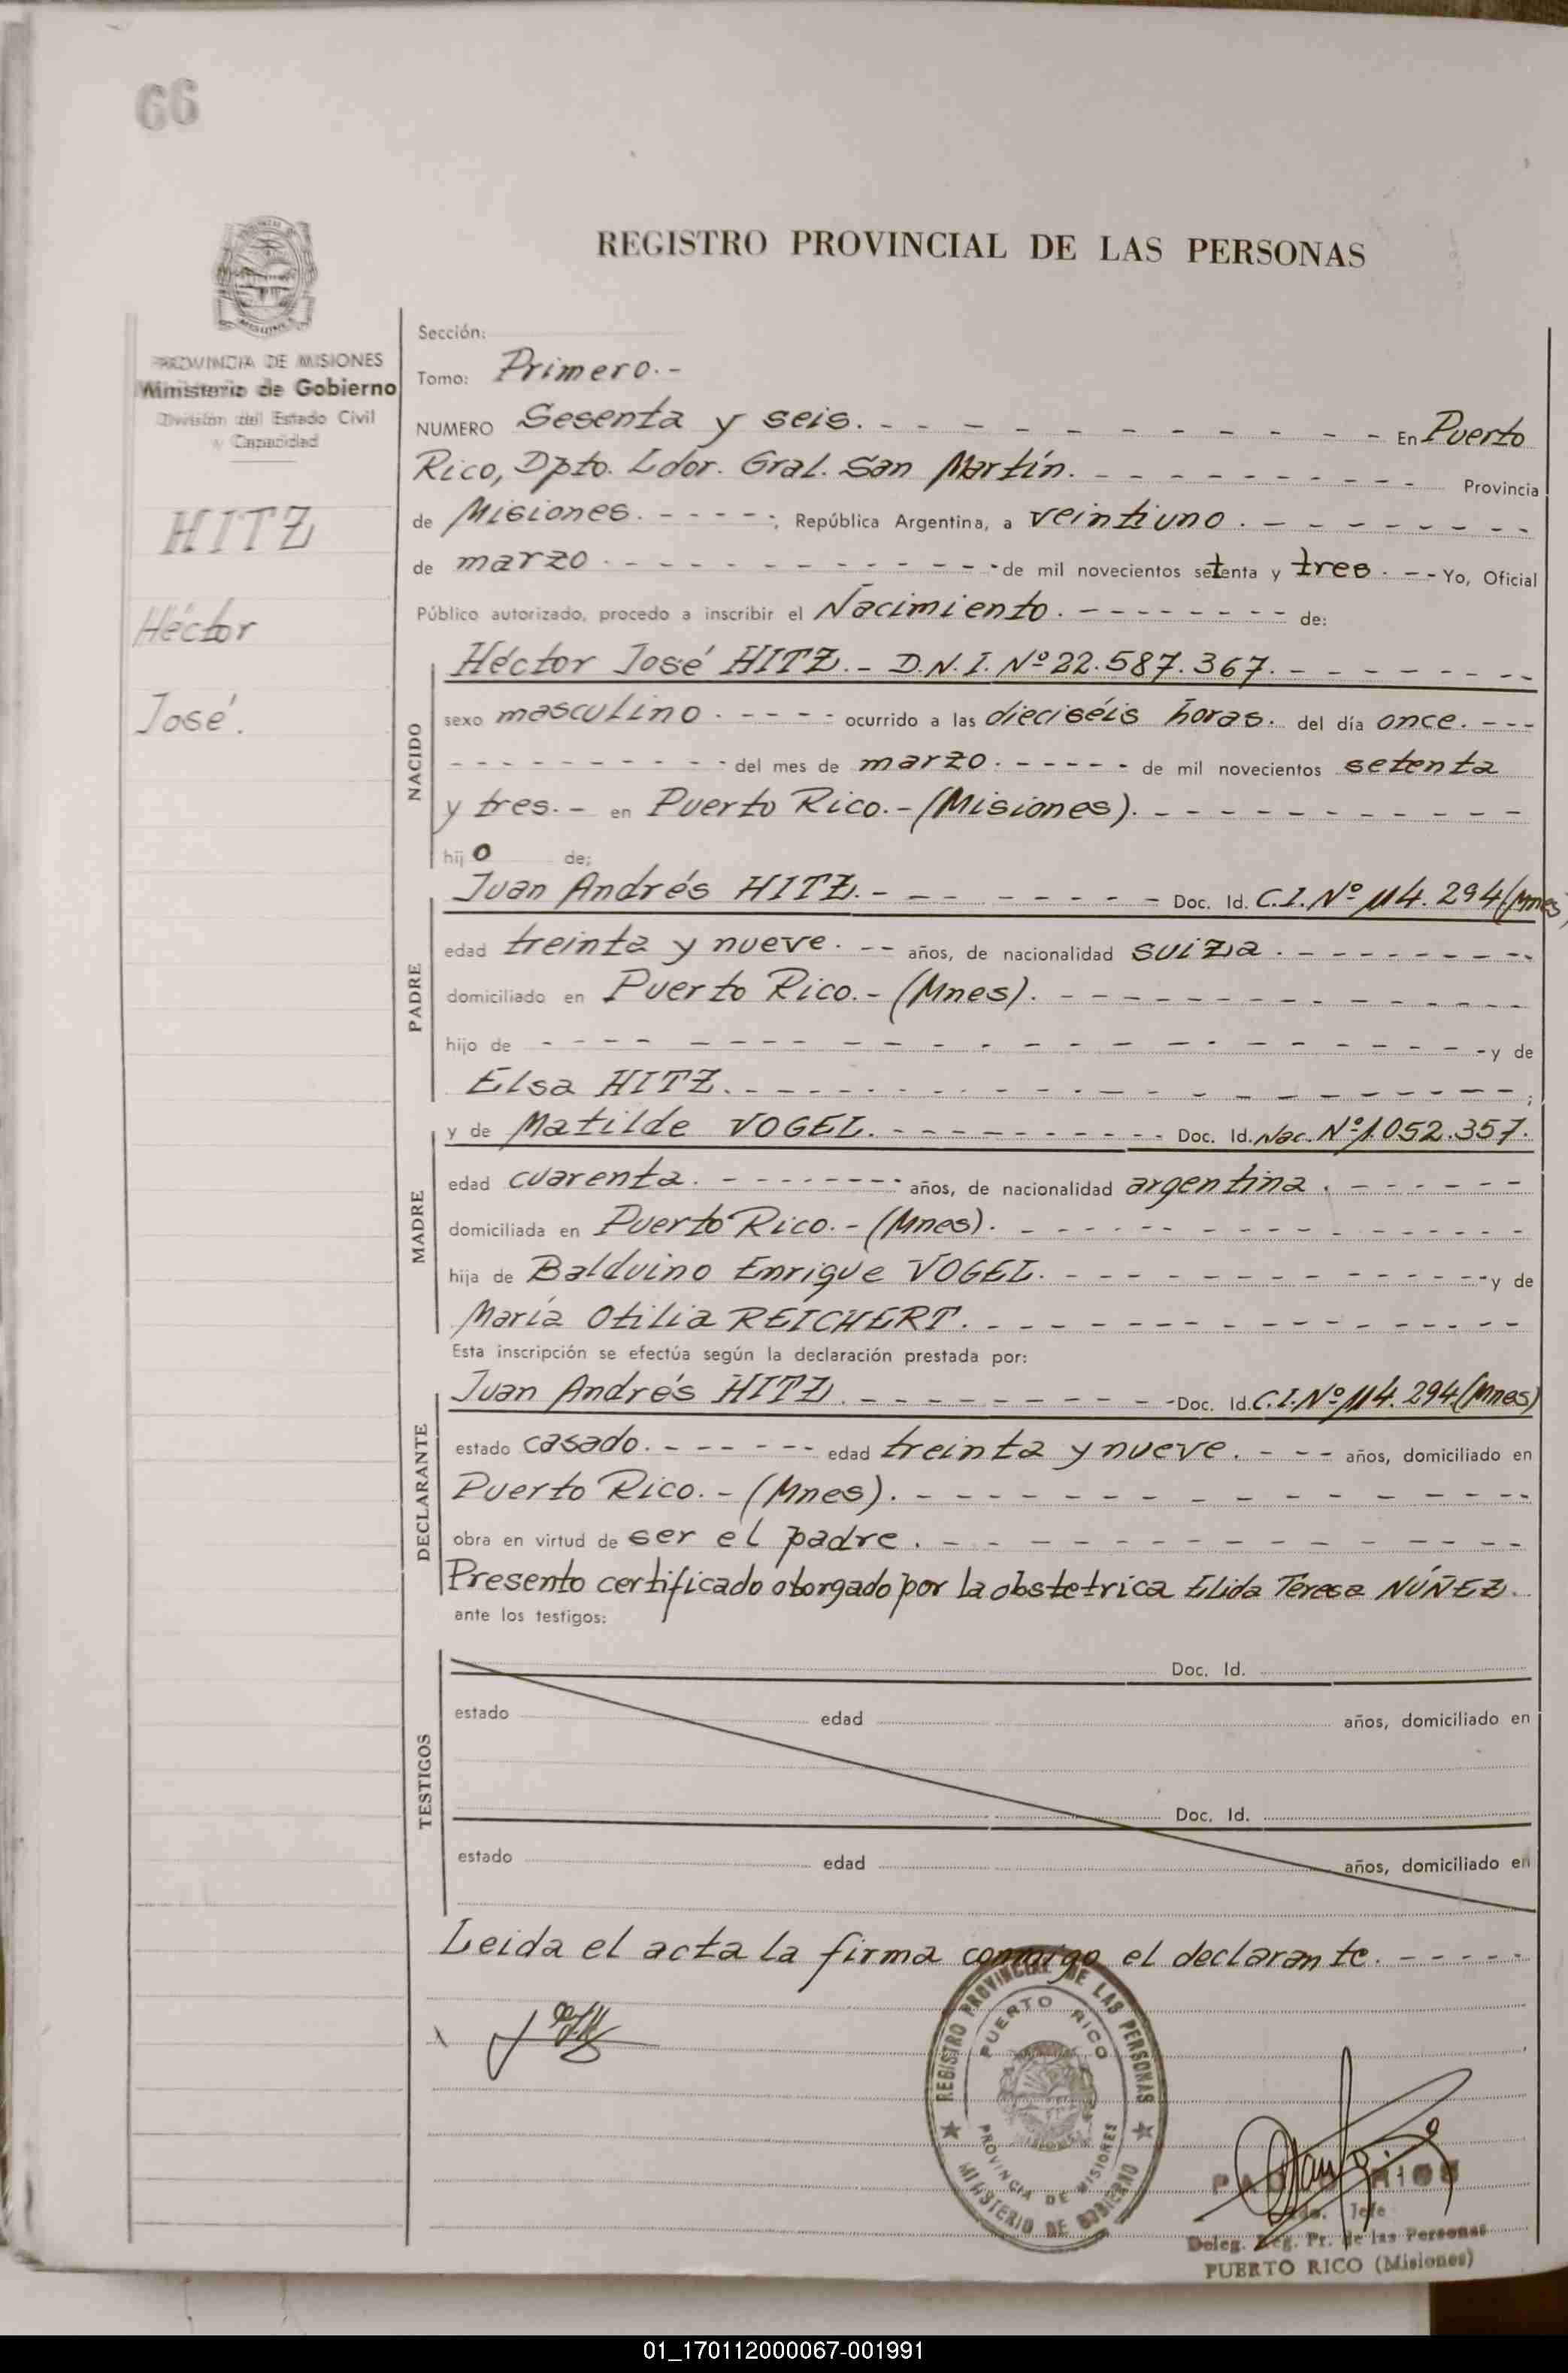 66
REGISTRO PROVINCIAL DE LAS PERSONAS
PROVINCIA DE MISIONES
Ministerio de Gobierno
División del Estado Civil
y Capacidad
HITZ
Héctor
José.
Sección:
Tomo: Primero.-
NUMERO Sesenta y seis. - - - - - - - - - - - En Puerto
Rico, Dpto. Ldor. Gral. San Martín. - - - - - - - - - - Provincia
de Misiones. - - - - -; República Argentina, a veintiuno. - - - - - - - -
de marzo - - - - - - - - - - - - de mil novecientos setenta y tres. - - Yo, Oficial
Público autorizado, procedo a inscribir el Nacimiento. - - - - - - - - de:
NACIDO
Héctor José HITZ.- D.N.I. Nº 22.587.367. - - - - - - - -
sexo masculino. - - - - ocurrido a las dieciséis horas. del día once. - - -
- - - - - - - - - - del mes de marzo. - - - - - de mil novecientos setenta
y tres. - en Puerto Rico.- (Misiones). - - - - - - - - - - -
hijo de;
PADRE
Juan Andrés HITZ. - - - - - - - - - Doc. Id. C.I. Nº 114.294 (Mnes)
edad treinta y nueve. - - años, de nacionalidad suiza. - - - - - - - - -
domiciliado en Puerto Rico.- (Mnes). - - - - - - - - - - - - -
hijo de - - - - - - - - - - - - - - - - - - - - - - y de
Elsa HITZ. - - - - - - - - - - - - - - - - - - - - ;
MADRE
y de Matilde VOGEL. - - - - - - - - - - Doc. Id. Nac. Nº 1.052.357.
edad cuarenta. - - - - - - - - años, de nacionalidad argentina. - - - - - -
domiciliada en Puerto Rico.- (Mnes). - - - - - - - - - - - - - -
hija de Balduino Enrique VOGEL. - - - - - - - - - - - - - y de
María Otilia REICHERT. - - - - - - - - - - - - - - - -
Esta inscripción se efectúa según la declaración prestada por:
DECLARANTE
Juan Andrés HITZ. - - - - - - - - - - Doc. Id. C.I. Nº 114.294 (Mnes)
estado casado. - - - - - - edad treinta y nueve. - - - años, domiciliado en
Puerto Rico.- (Mnes). - - - - - - - - - - - - - - - -
obra en virtud de ser el padre. - - - - - - - - - - - - - - -
Presento certificado otorgado por la obstetrica Elida Teresa NÚÑEZ.
ante los testigos:
TESTIGOS
Doc. Id.
estado edad años, domiciliado en
Doc. Id.
estado edad años, domiciliado en
Leida el acta la firma conmigo el declarante. - - - - -
REGISTRO PROVINCIAL DE LAS PERSONAS
PUERTO RICO
PROVINCIA DE MISIONES
MINISTERIO DE GOBIERNO
RIOS
Jefe
Deleg. Reg. Pr. de las Personas
PUERTO RICO (Misiones)
01_170112000067-001991